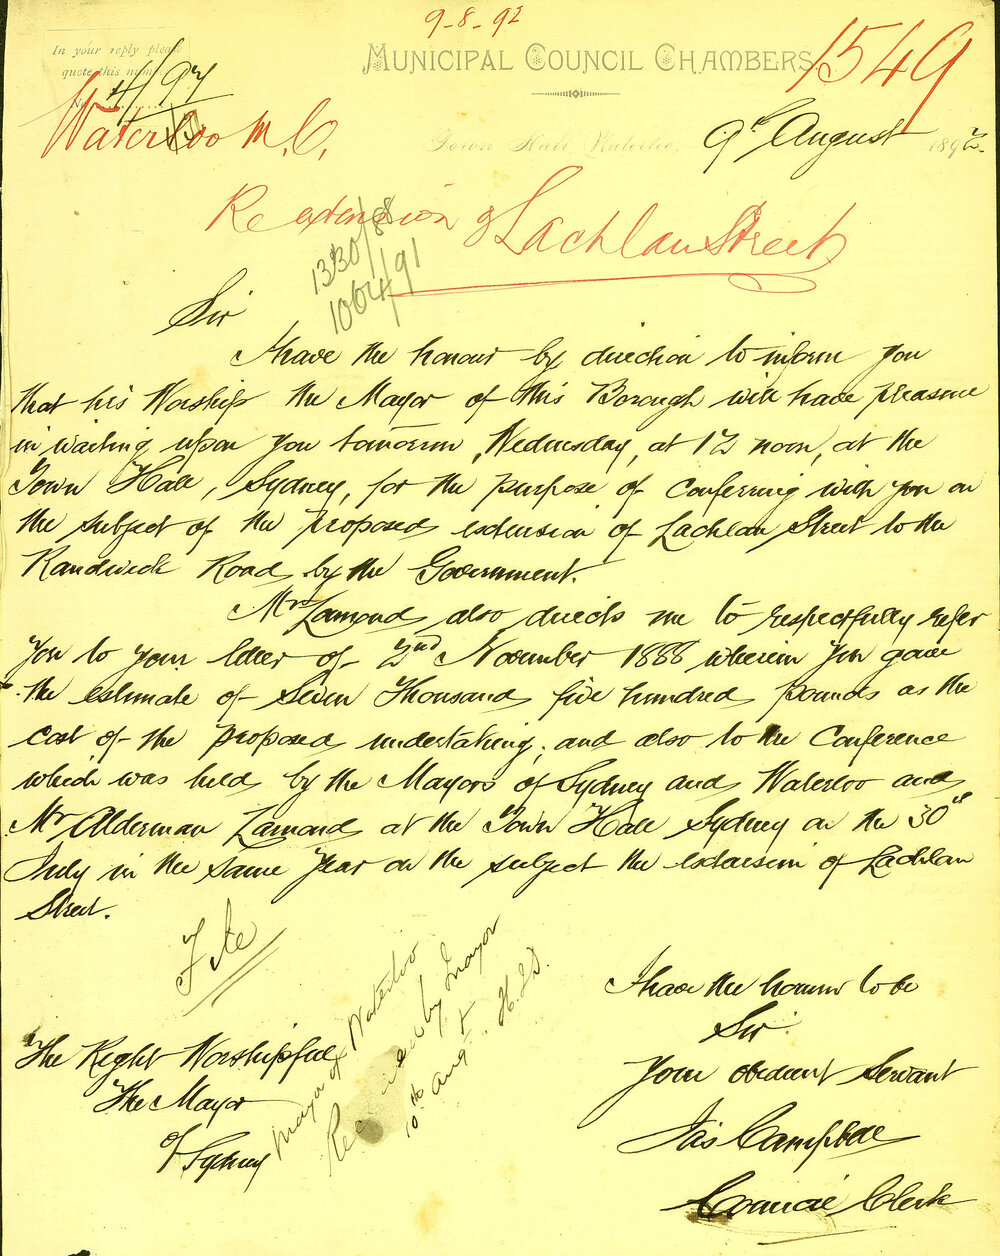 9-8-92
In your reply please
quote this number
No. 4/92
MUNICIPAL COUNCIL CHAMBERS
1549
Waterloo M.C.
Town Hall, Waterloo,
9th August 1892.
Re extension of Lachlan Street
1330/88
1064/91
Sir
I have the honour by direction to inform you
that his Worship the Mayor of this Borough will have pleasure
in waiting upon you tomorrow, Wednesday, at 12 noon, at the
Town Hall, Sydney, for the purpose of conferring with you on
the subject of the proposed extension of Lachlan Street to the
Randwick Road by the Government.
Mr Lamond also directs me to respectfully refer
you to your letter of 2nd November 1888 wherein you gave
the estimate of Seven Thousand five hundred pounds as the
cost of the proposed undertaking; and also to the Conference
which was held by the Mayors of Sydney and Waterloo and
Mr Alderman Lamond at the Town Hall Sydney on the 30th
July in the same year on the subject the extension of Lachlan
Street.
File
Mayor of Waterloo
Received by Mayor
10th Augt.
I have the honour to be
Sir
Your obedient Servant
Jas Campbell
Council Clerk
The Right Worshipful
The Mayor
of Sydney